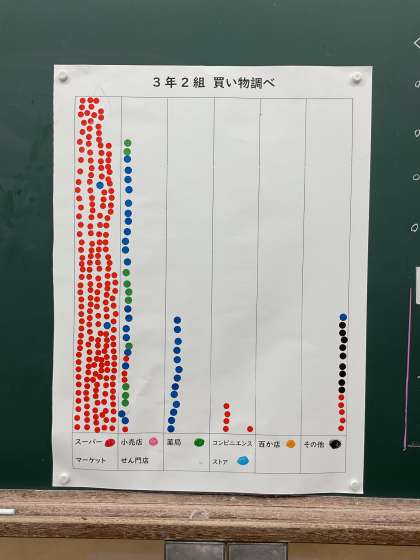 3年2組 買い物調べ
スーパー
マーケット
小売店
せん門店
薬局
コンビニエンス
ストア
百か店
その他